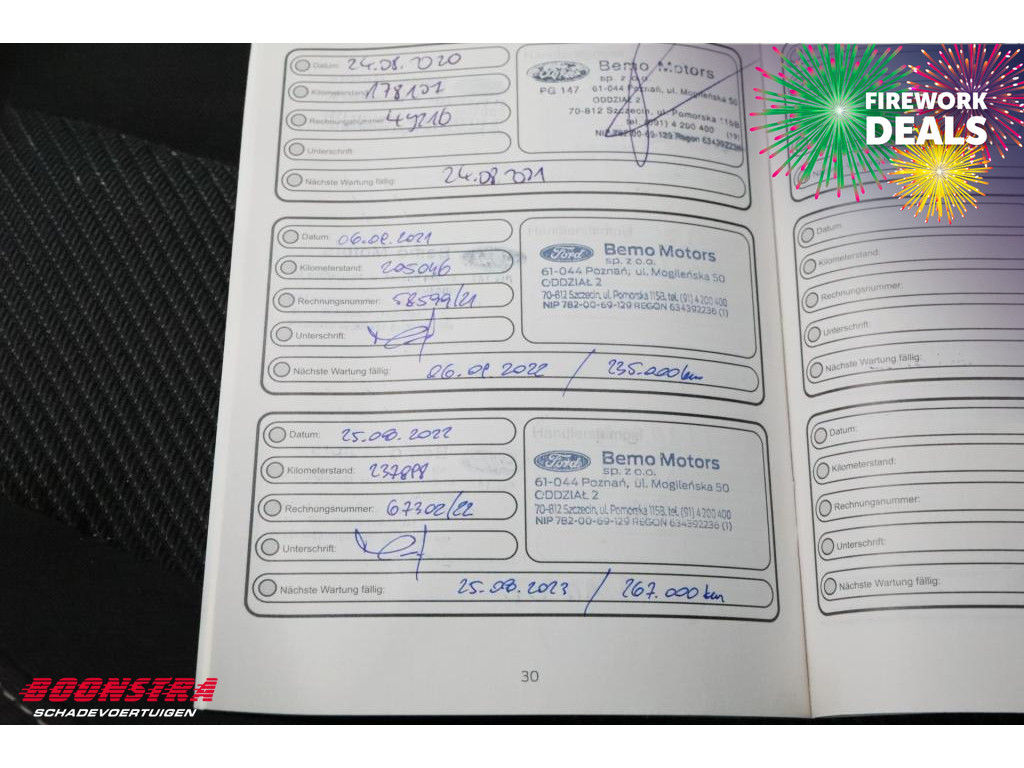 Datum: 24.08.2020
Kilometerstand: 178107
Rechnungsnummer:
Unterschrift:
Nächste Wartung fällig: 24.08.2021
Ford
Bemo Motors
sp. z o.o.
PG 147 61-044 Poznań, ul. Mogileńska 50
ODDZIAŁ 2
70-812 Szczecin, ul. Pomorska 115B
tel. (91) 4 200 400 (19)
NIP 782-00-69-129 Regon 634392236
Datum: 06.08.2021
Kilometerstand: 205046
Rechnungsnummer: 58599/21
Unterschrift:
Nächste Wartung fällig: 06.08.2022 / 235.000km
Händlerstempel
Ford
Bemo Motors
sp. z o.o.
61-044 Poznań, ul. Mogileńska 50
ODDZIAŁ 2
70-812 Szczecin, ul. Pomorska 115B, tel. (91) 4 200 400
NIP 782-00-69-129 REGON 634392236 (1)
Datum: 25.08.2022
Kilometerstand: 237898
Rechnungsnummer: 67302/22
Unterschrift:
Nächste Wartung fällig: 25.08.2023 / 267.000km
Händlerstempel
Ford
Bemo Motors
sp. z o.o.
61-044 Poznań, ul. Mogileńska 50
ODDZIAŁ 2
70-812 Szczecin, ul. Pomorska 115B, tel. (91) 4 200 400
NIP 782-00-69-129 REGON 634392236 (1)
30
Datum:
Kilometerstand:
Rechnungsnummer:
Unterschrift:
Nächste Wartung fällig:
Datum:
Kilometerstand:
Rechnungsnummer:
Unterschrift:
Nächste Wartung fällig:
FIREWORK
DEALS
BOONSTRA
SCHADEVOERTUIGEN